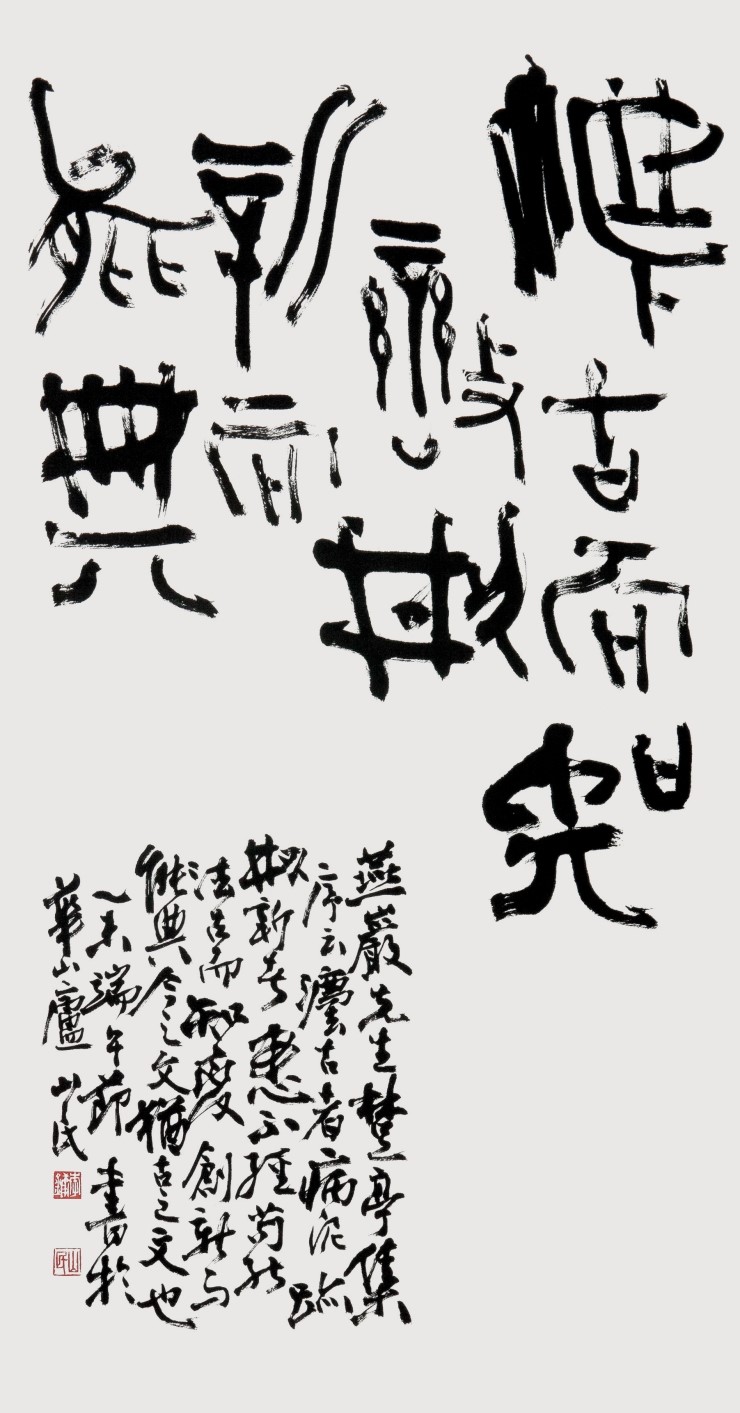 灋古而知
變刱
新而
能典
燕巖先生楚亭集
序云灋古者病泥跡
刱新者患不經苟能
法古而知變創新而
能典今之文猶古之文也
乙未端午節書於
華山廬 山民
山民